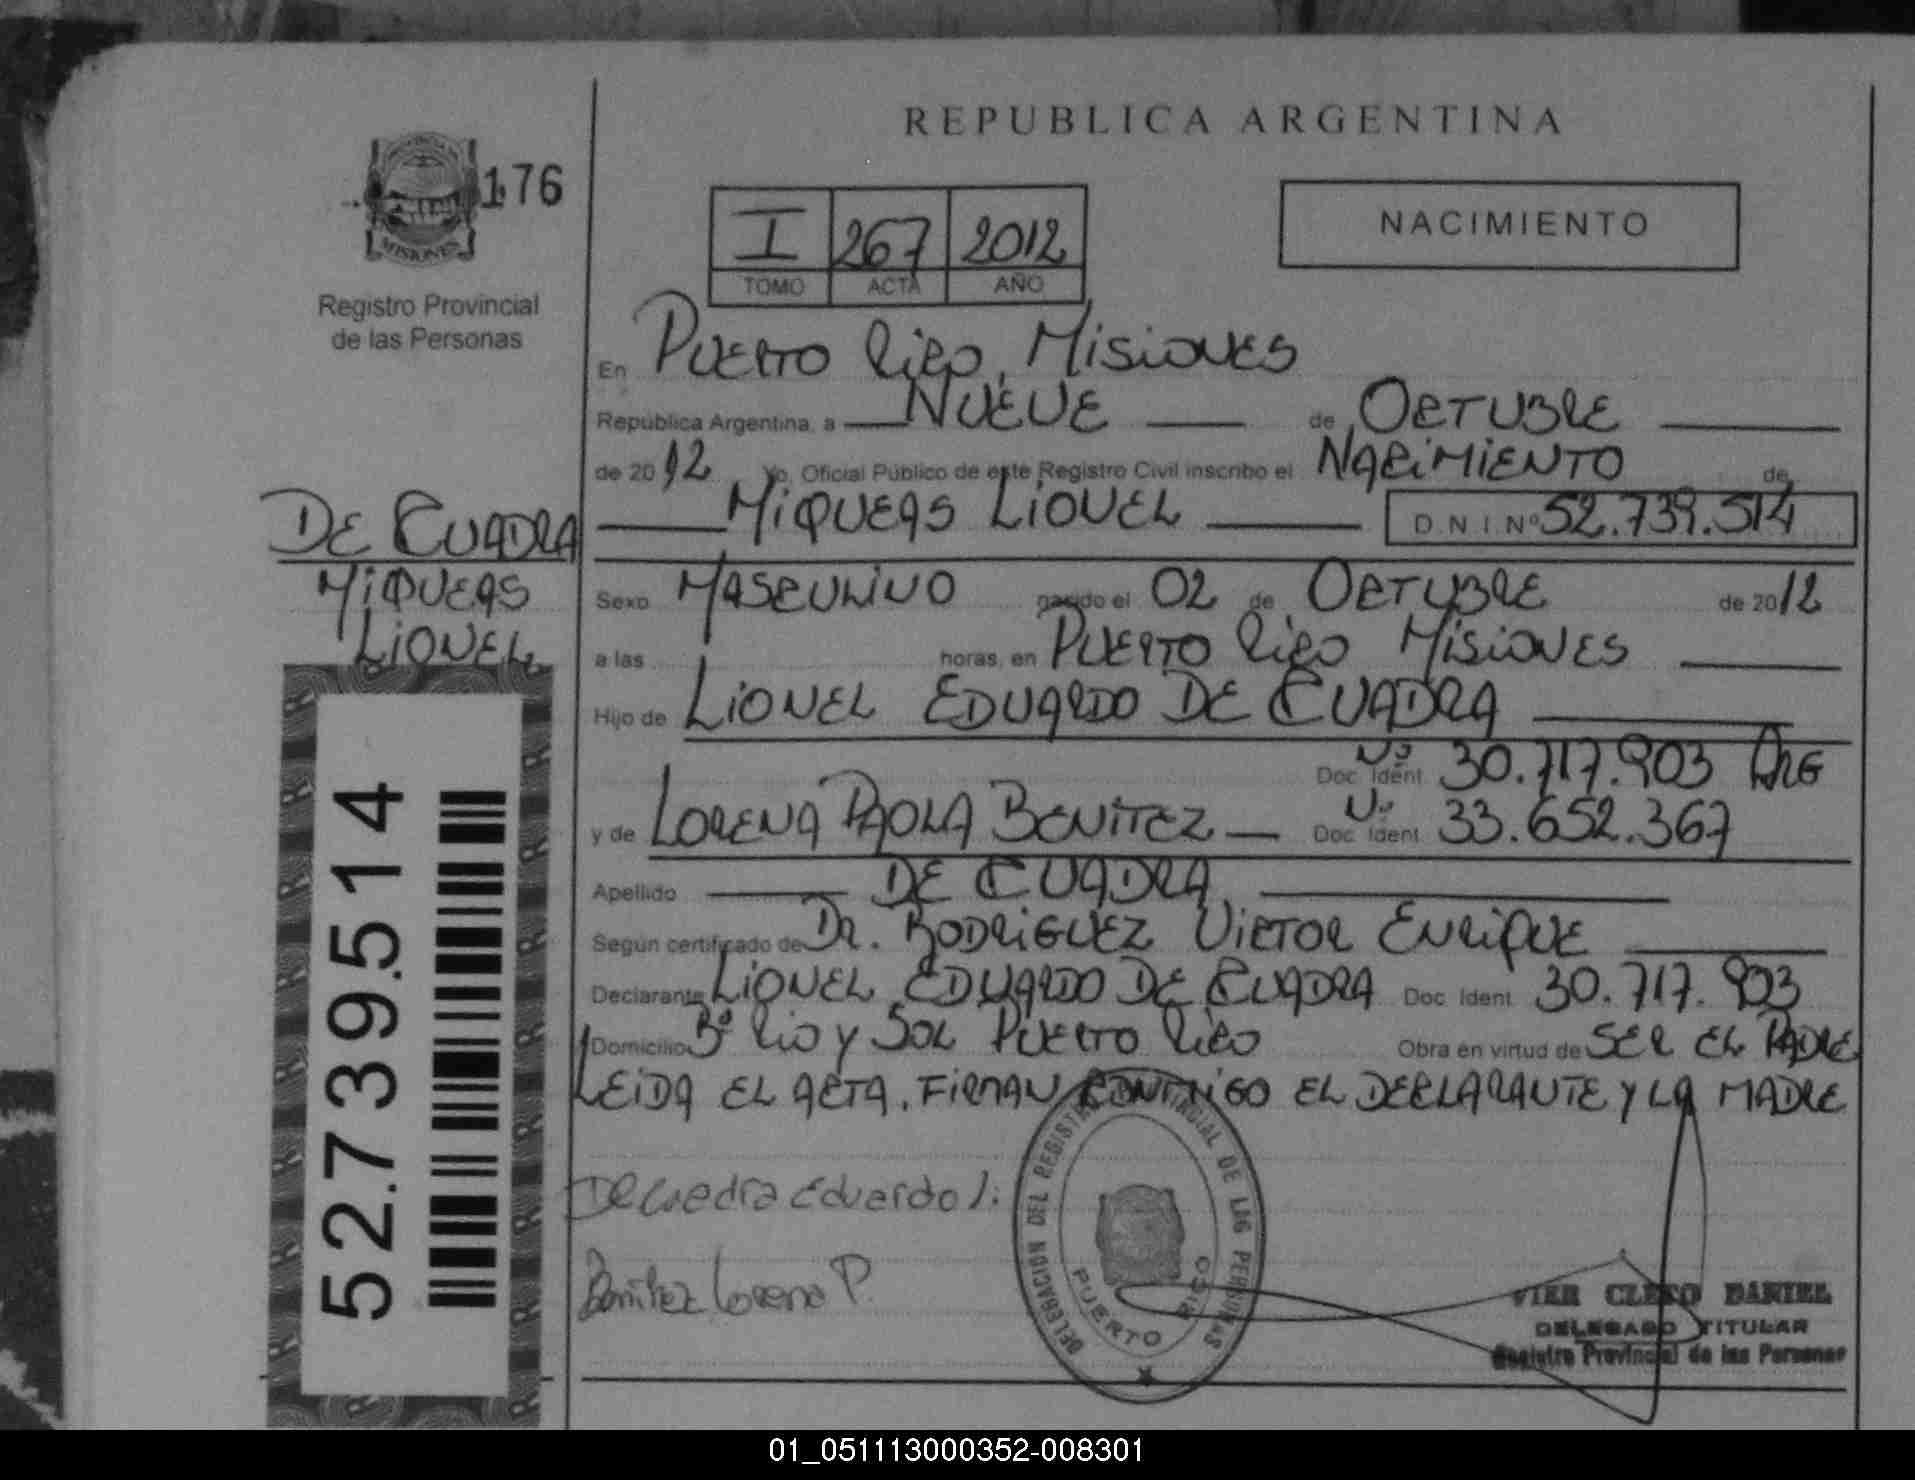 REPUBLICA ARGENTINA
176
MISIONES
Registro Provincial
de las Personas
I 267 2012
TOMO ACTA AÑO
NACIMIENTO
En PUERTO RICO, MISIONES
República Argentina, a NUEVE de OCTUBRE
de 2012 Yo, Oficial Público de este Registro Civil inscribo el NACIMIENTO de
MIQUEAS LIONEL D.N.I.Nº 52.739.514
DE CUADRA
MIQUEAS
LIONEL
Sexo MASCULINO nacido el 02 de OCTUBRE de 2012
a las horas, en PUERTO RICO MISIONES
Hijo de LIONEL EDUARDO DE CUADRA
Doc Ident Nº 30.717.903 ARG
y de LORENA PAOLA BENITEZ Doc Ident Nº 33.652.367
Apellido DE CUADRA
Según certificado de DR. RODRIGUEZ VICTOR ENRIQUE
Declarante LIONEL EDUARDO DE CUADRA Doc Ident 30.717.903
Domicilio Bº RIO Y SOL PUERTO RICO Obra en virtud de SER EL PADRE
LEIDA EL ACTA, FIRMAN CONMIGO EL DECLARANTE Y LA MADRE
52.739.514
De Cuadra Eduardo L.
Benitez Lorena P.
DELEGACION DEL REGISTRO PROVINCIAL DE LAS PERSONAS
PUERTO RICO
VIER CLECO DANIEL
DELEGADO TITULAR
Registro Provincial de las Personas
01_051113000352-008301